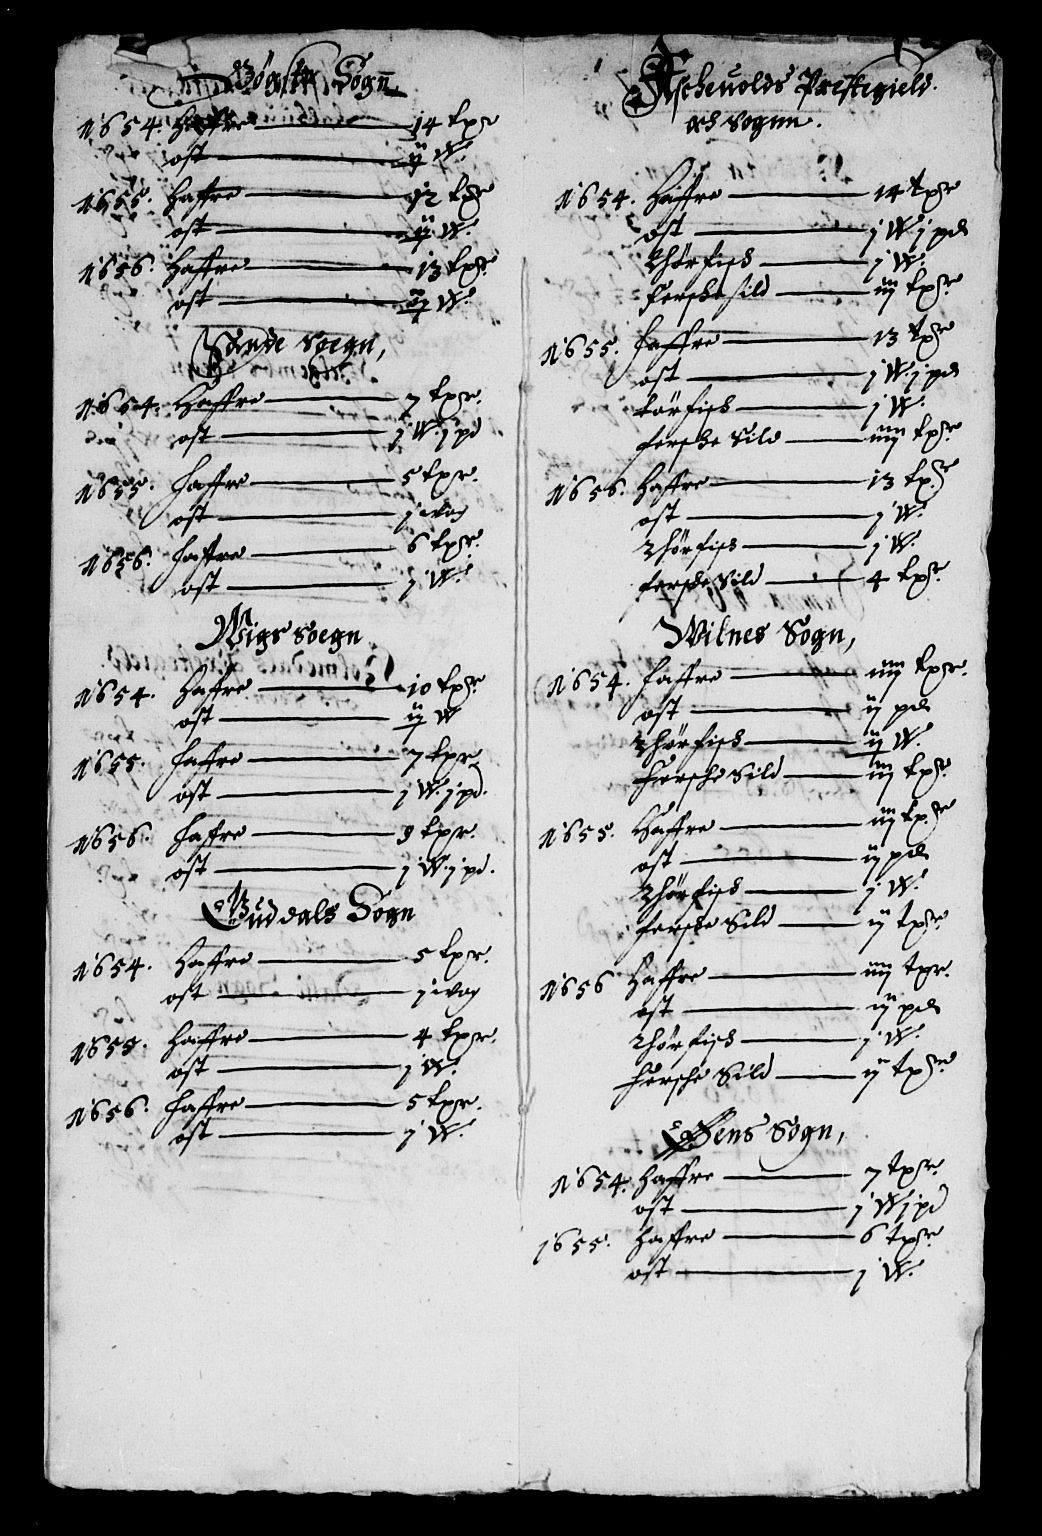 Sogn
1654. Haffre 14 tpr
ost ij W.
1655. Haffre 12 tpr
ost ij W.
1656. Haffre 13 tpr.
ost ij W.
Sande Soegn,
1654. Haffre 7 tpr.
ost j W. j pd
1655. haffre 5 tpr.
ost j wog
1656. haffre 6 tpr.
ost j W.
Wigs Soegn
1654. Haffre 10 tpr
ost ij W
1655. haffre 7 tpr
ost j W. j pd.
1656. haffre 9 tpr.
ost j W. j pd.
Guddals Sogn
1654. Haffre 5 tpr.
ost j wog
1655. haffre 4 tpr.
ost j W.
1656. haffre 5 tpr.
ost j W.
Ascheuolds Prestegield.
och Sognn.
1654. Haffre 14 tpr
ost j W j pd
Thörfisch j W.
ferscke sild iij tpr
1655. haffre 13 tpr
ost j W. j pd
törfisch j W.
fersche Sild iiij tpr
1656. Haffre 13 tpr
ost j W.
Thörfisch j W.
fersche Sild 4 tpr
Wilnes Sogn,
1654. haffre iiij tpr.
ost ij pd
Thörfisch ij W.
fersche Sild iij tpr
1655. Haffre iij tpr
ost ij pd
Thörfisch j W.
fersche Sild ij tpr
1656 Haffre iiij tpr.
ost ij pd
Thörfisch j W.
fersche Sild ij tpr
Sogn,
1654. haffre 7 tpr.
ost j W j pd
1655. haffre 6 tpr.
ost j W.